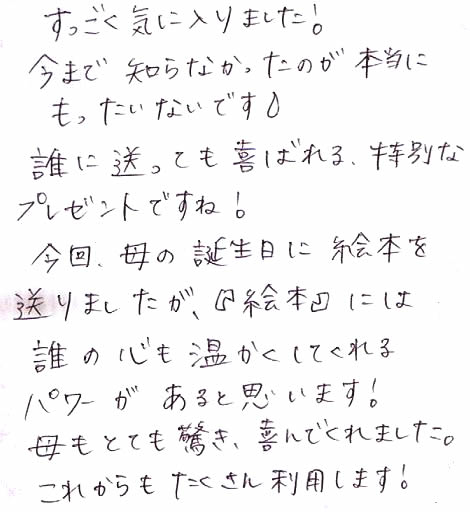 すっごく気に入りました!
今まで 知らなかったのが 本当に
もったいないです
誰に送っても喜ばれる、特別な
プレゼントですね!
今回、母の誕生日に 絵本を
送りましたが、『絵本』には
誰の心も温かくしてくれる
パワーが あると思います!
母もとても驚き、喜んでくれました。
これからも たくさん利用します!